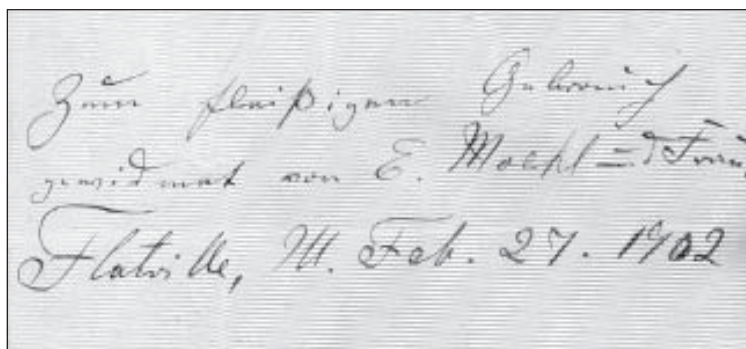 Zum fleißigen Gebrauch
gewidmet von E. Moehl und Frau,
Flatville, Ill. Feb. 27. 1902